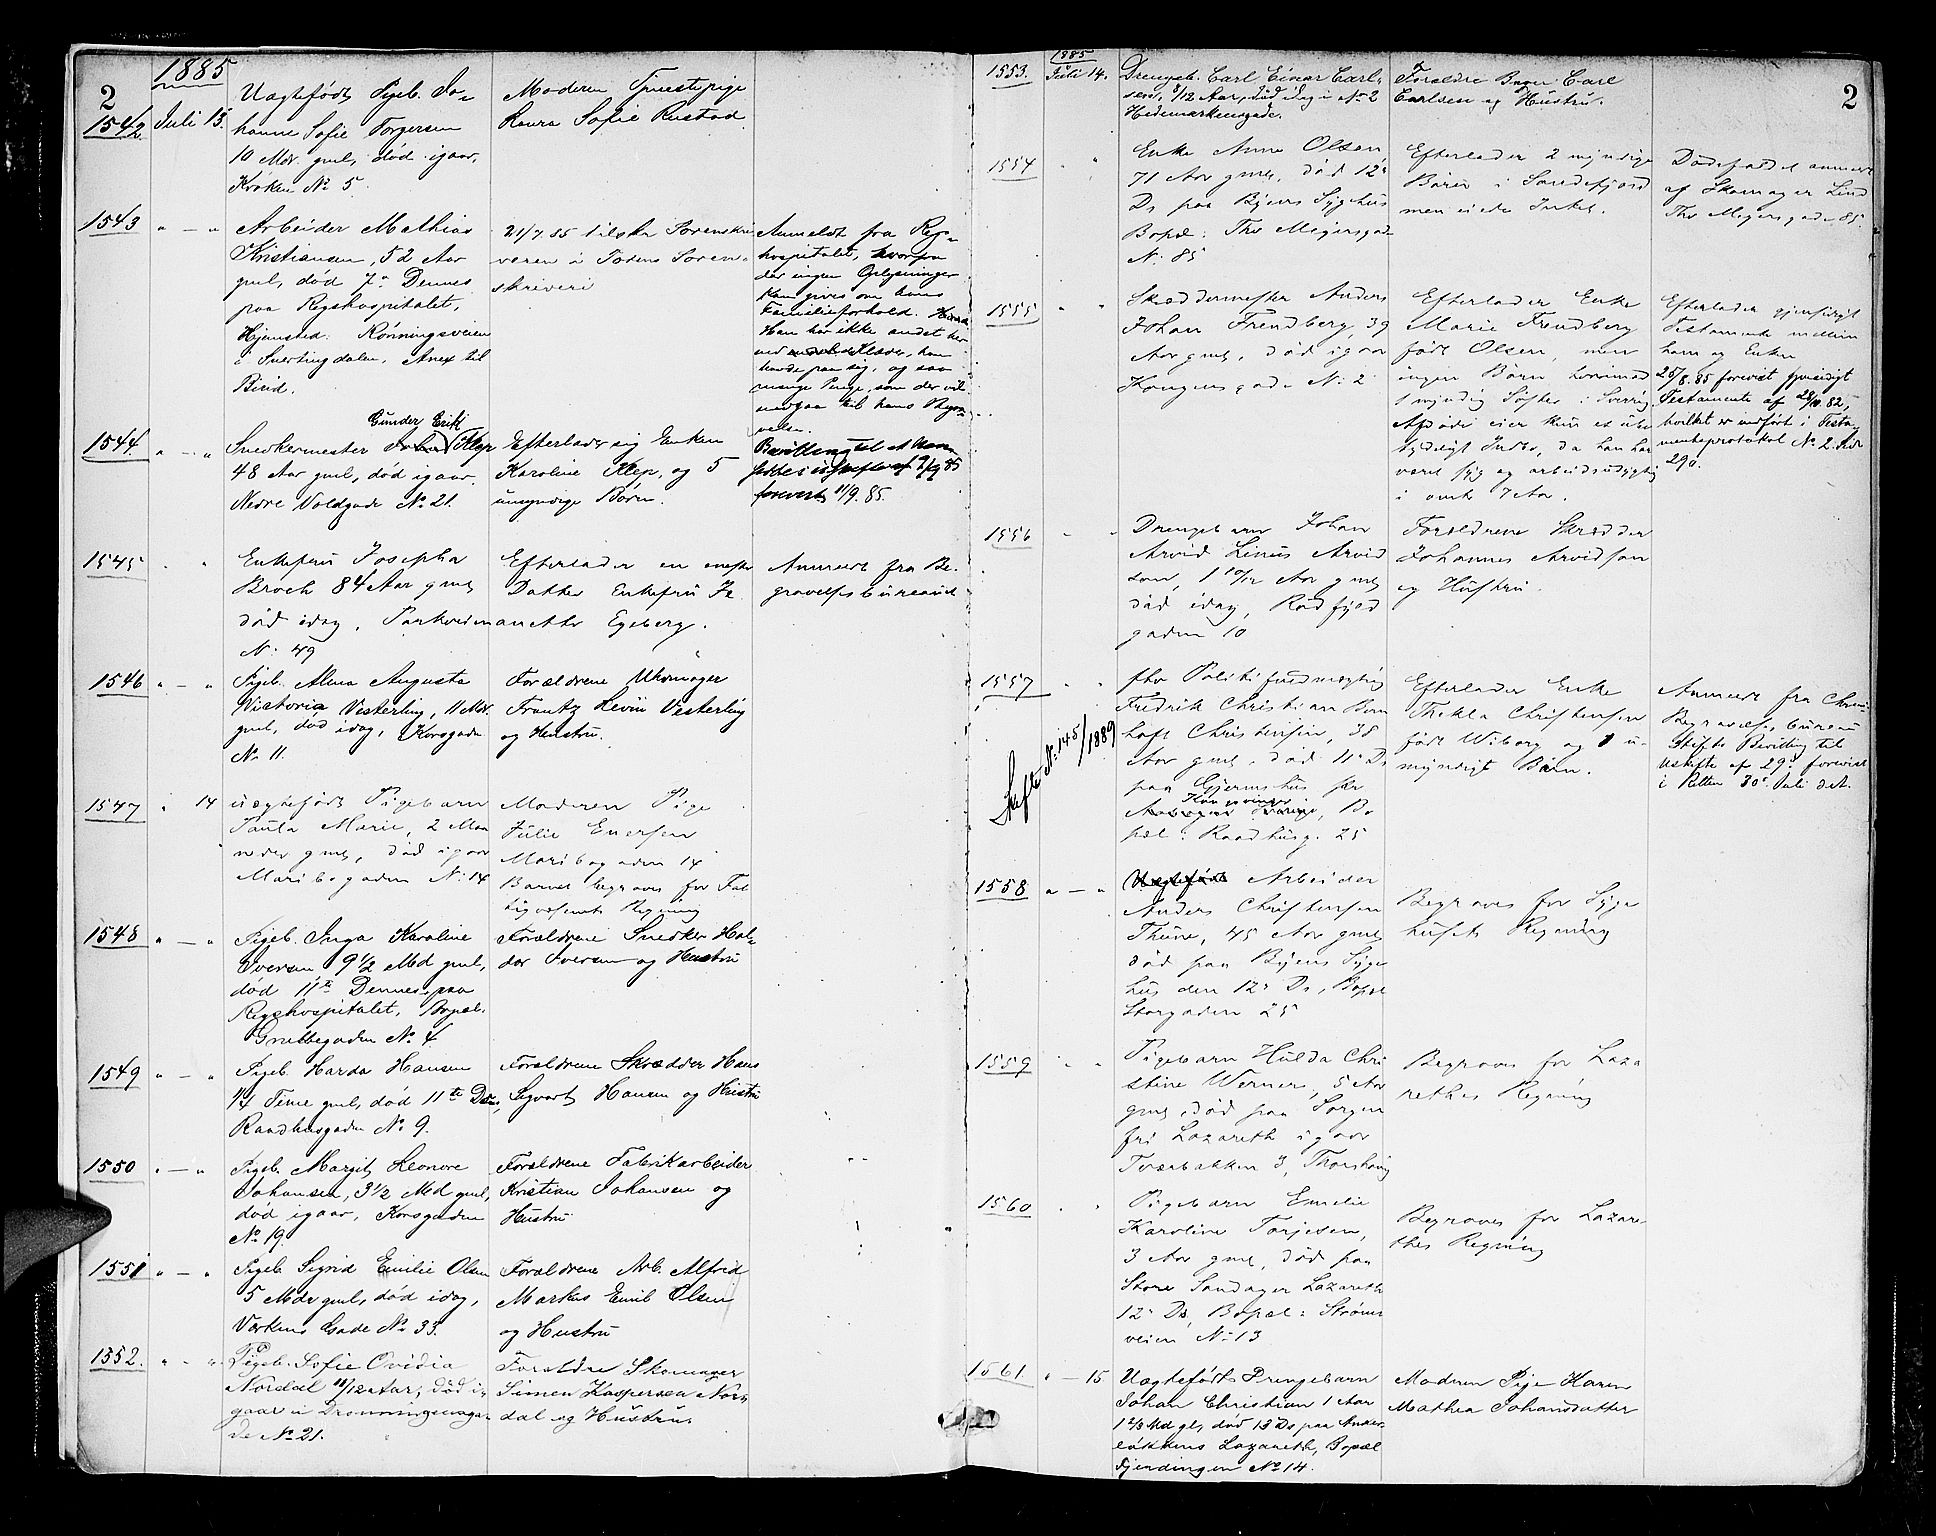 2
1885
1542 Juli 13. Uægtefødt Pigeb. Jo-
hanne Sofie Torgersen
10 Mdr. gml, død igaar,
Kroken No 5.
Moderen Tjenestepige
Laura Sofie Rustad
1543 " — " Arbeider Mathias
Kristiansen, 52 Aar
gml, død 7de Dennes
paa Rigshospitalet,
Hjemsted: Rønningsveien
i Snertingdalen, Anex til
Birid.
21/7 85 tilskr. Sorenskri-
veren i Totens Soren-
skriveri
Anmeldt fra Rigs-
hospitalet, hvorfra
der ingen Oplysninger
kan gives om hans
Familieforhold.
Han har ikke andet her
end Klæder, han
havde paa sig, og saa
mange Penge, som der vil
medgaa til hans Begra-
velse.
1544 " — " Gunder Erik
Snedkermester Klep
48 Aar gml, død igaar,
Nedre Voldgade No 21.
Efterlader sig Enken
Karoline Klep, og 5
umyndige Børn.
Bevilling til at hen-
sidde i uskiftet af 9/9 85
forevist 11/9. 85.
1545 " " Enkefru Josepha
Broch 84 Aar gml
død idag, Parkveien
N: 49
Efterlader en eneste
Datter Enkefru Je
anette Egeberg.
Anmeldt fra Be-
gravelsesbureauet
1546 " — " Pigeb. Alma Augusta
Victoria Vesterling, 11 Mdr.
gml, død idag, Korsgade
No 11.
Forældrene Uhrmager
Frantz Levin Vesterling
og Hustru.
1547 " 14 uægtefødt Pigebarn
Paula Marie, 2 Maa
neder gml, død igaar
Maribogaden N: 14
Moderen Pige
Julie Enersen
Maribogaden 14
Barnet begraves for Fat
tigvæsenets Regning
1548 " — " Pigeb. Inga Karoline
Iversen 9 1/2 Md gml,
død 11te Dennes paa
Rigshospitalet, Bopæl.
Grubbegaden No 4
Forældrene Snedker Hal-
dor Iversen og Hustru
1549 " — " Pigeb. Harda Hansen
1/4 Time gml, død 11te Ds,
Raadhusgaden No 9.
Forældrene Skrædder Hans
Sigvart Hansen og Hustru
1550 " — " Pigeb. Margit Leonore
Johansen, 3 1/2 Md gml,
død igaar, Korsgaden
No 19.
Forældrene Fabrikarbeider
Kristian Johansen og
Hustru
1551 " — " Pigeb. Sigrid Emilie Olsen
5 Mdr gml, død idag,
Værkens Gade No 33.
Forældrene Arb. Alfred
Markus Emil Olsen
og Hustru
1552. " - " Pigeb. Sofie Ovidia
Nordal 11/12 Aar, død i-
gaar i Dronningensga-
de No 21.
Forældre Skomager
Simen Kaspersen Nor-
dal og Hustru.
2
1885
1553. Juli 14. Drengeb. Carl Einar Carl-
sen, 8/12 Aar, død idag i No 2
Hedemarkensgade.
Forældre Bager Carl
Carlsen og Hustru.
1554 " " Enke Anne Olsen
71 Aar gml, død 12te
Ds paa Byens Sygehus
Bopæl: Ths Meyersgade
N: 85
Efterlader 2 myndige
Børn i Sandefjord
men eier Intet.
Dødsfaldet anmeldt
af Skomager Lind
Ths Meyersgade 85.
1555 " Skræddermester Anders
Johan Frendberg, 39
Aar gml, død igaar
Kongensgade N: 2
Efterlader Enke
Marie Frendberg
født Olsen, men
ingen Børn hvorimod
1 myndig Søster i Sverig
Afdøde eier kun et ube
tydeligt Indbo, da han har
været syg og arbeidsudygtig
i omtr 7 Aar.
Efterlader gjensidigt
Testamente mellem
ham og Enken
25/8. 85 forevist gjensidigt
Testamente af 82,
hvilket er indført i Testa-
menteprotokol No 2. Side
290.
1556 " " Drengebarn Johan
Arvid Linus Arvid
son, 1 10/12 Aar gml
død idag, Rødfyld
gaden 10
Forældrene Skrædder
Johannes Arvidson
og Hustru.
1557 " "
Skifte N: 145/1889
fhv Politifuldmægtig
Fredrik Christian Born
hoft Christensen, 38
Aar gml, død 11te Ds
paa Gjerms hus pr
Kongsvinger, Bo
pæl: Raadhusg. 25
Efterlader Enke
Thekla Christensen
født Wiborg og 1 u-
myndigt Barn.
Anmeldt fra Chra
Begravelsesbureau
Stifts Bevilling til
Uskifte af 29de forevist
i Retten 30te Juli d.A.
1558 " — " Arbeider
Anders Christensen
Thune, 45 Aar gml
død paa Byens Syge
hus den 12te Ds, Bopæl
Storgaden 25
Begraves for Syge
husets Regning
1559 " " Pigebarn Hulda Chri
stine Werner, 5 Aar
gml, død paa Sorgen
fri Lazareth igaar
Tværbakken 3, Thorshaug
Begraves for Laza
rethets Regning
1560 " " Pigebarn Emelie
Karoline Torjesen,
3 Aar gml, død paa
Store Sandager Lazareth
12te Ds, Bopæl: Strøms
veien N: 13
Begraves for Lazare-
thets Regning
1561. " — 15 Uægtefødt Drengebarn
Johan Christian 1 Aar
1 2/3 Md gl, død 13 Ds paa Anker-
løkkens Lazareth, Bopæl
Fjerdingen No 14.
Moderen Pige Karen
Mathea Johansdatter